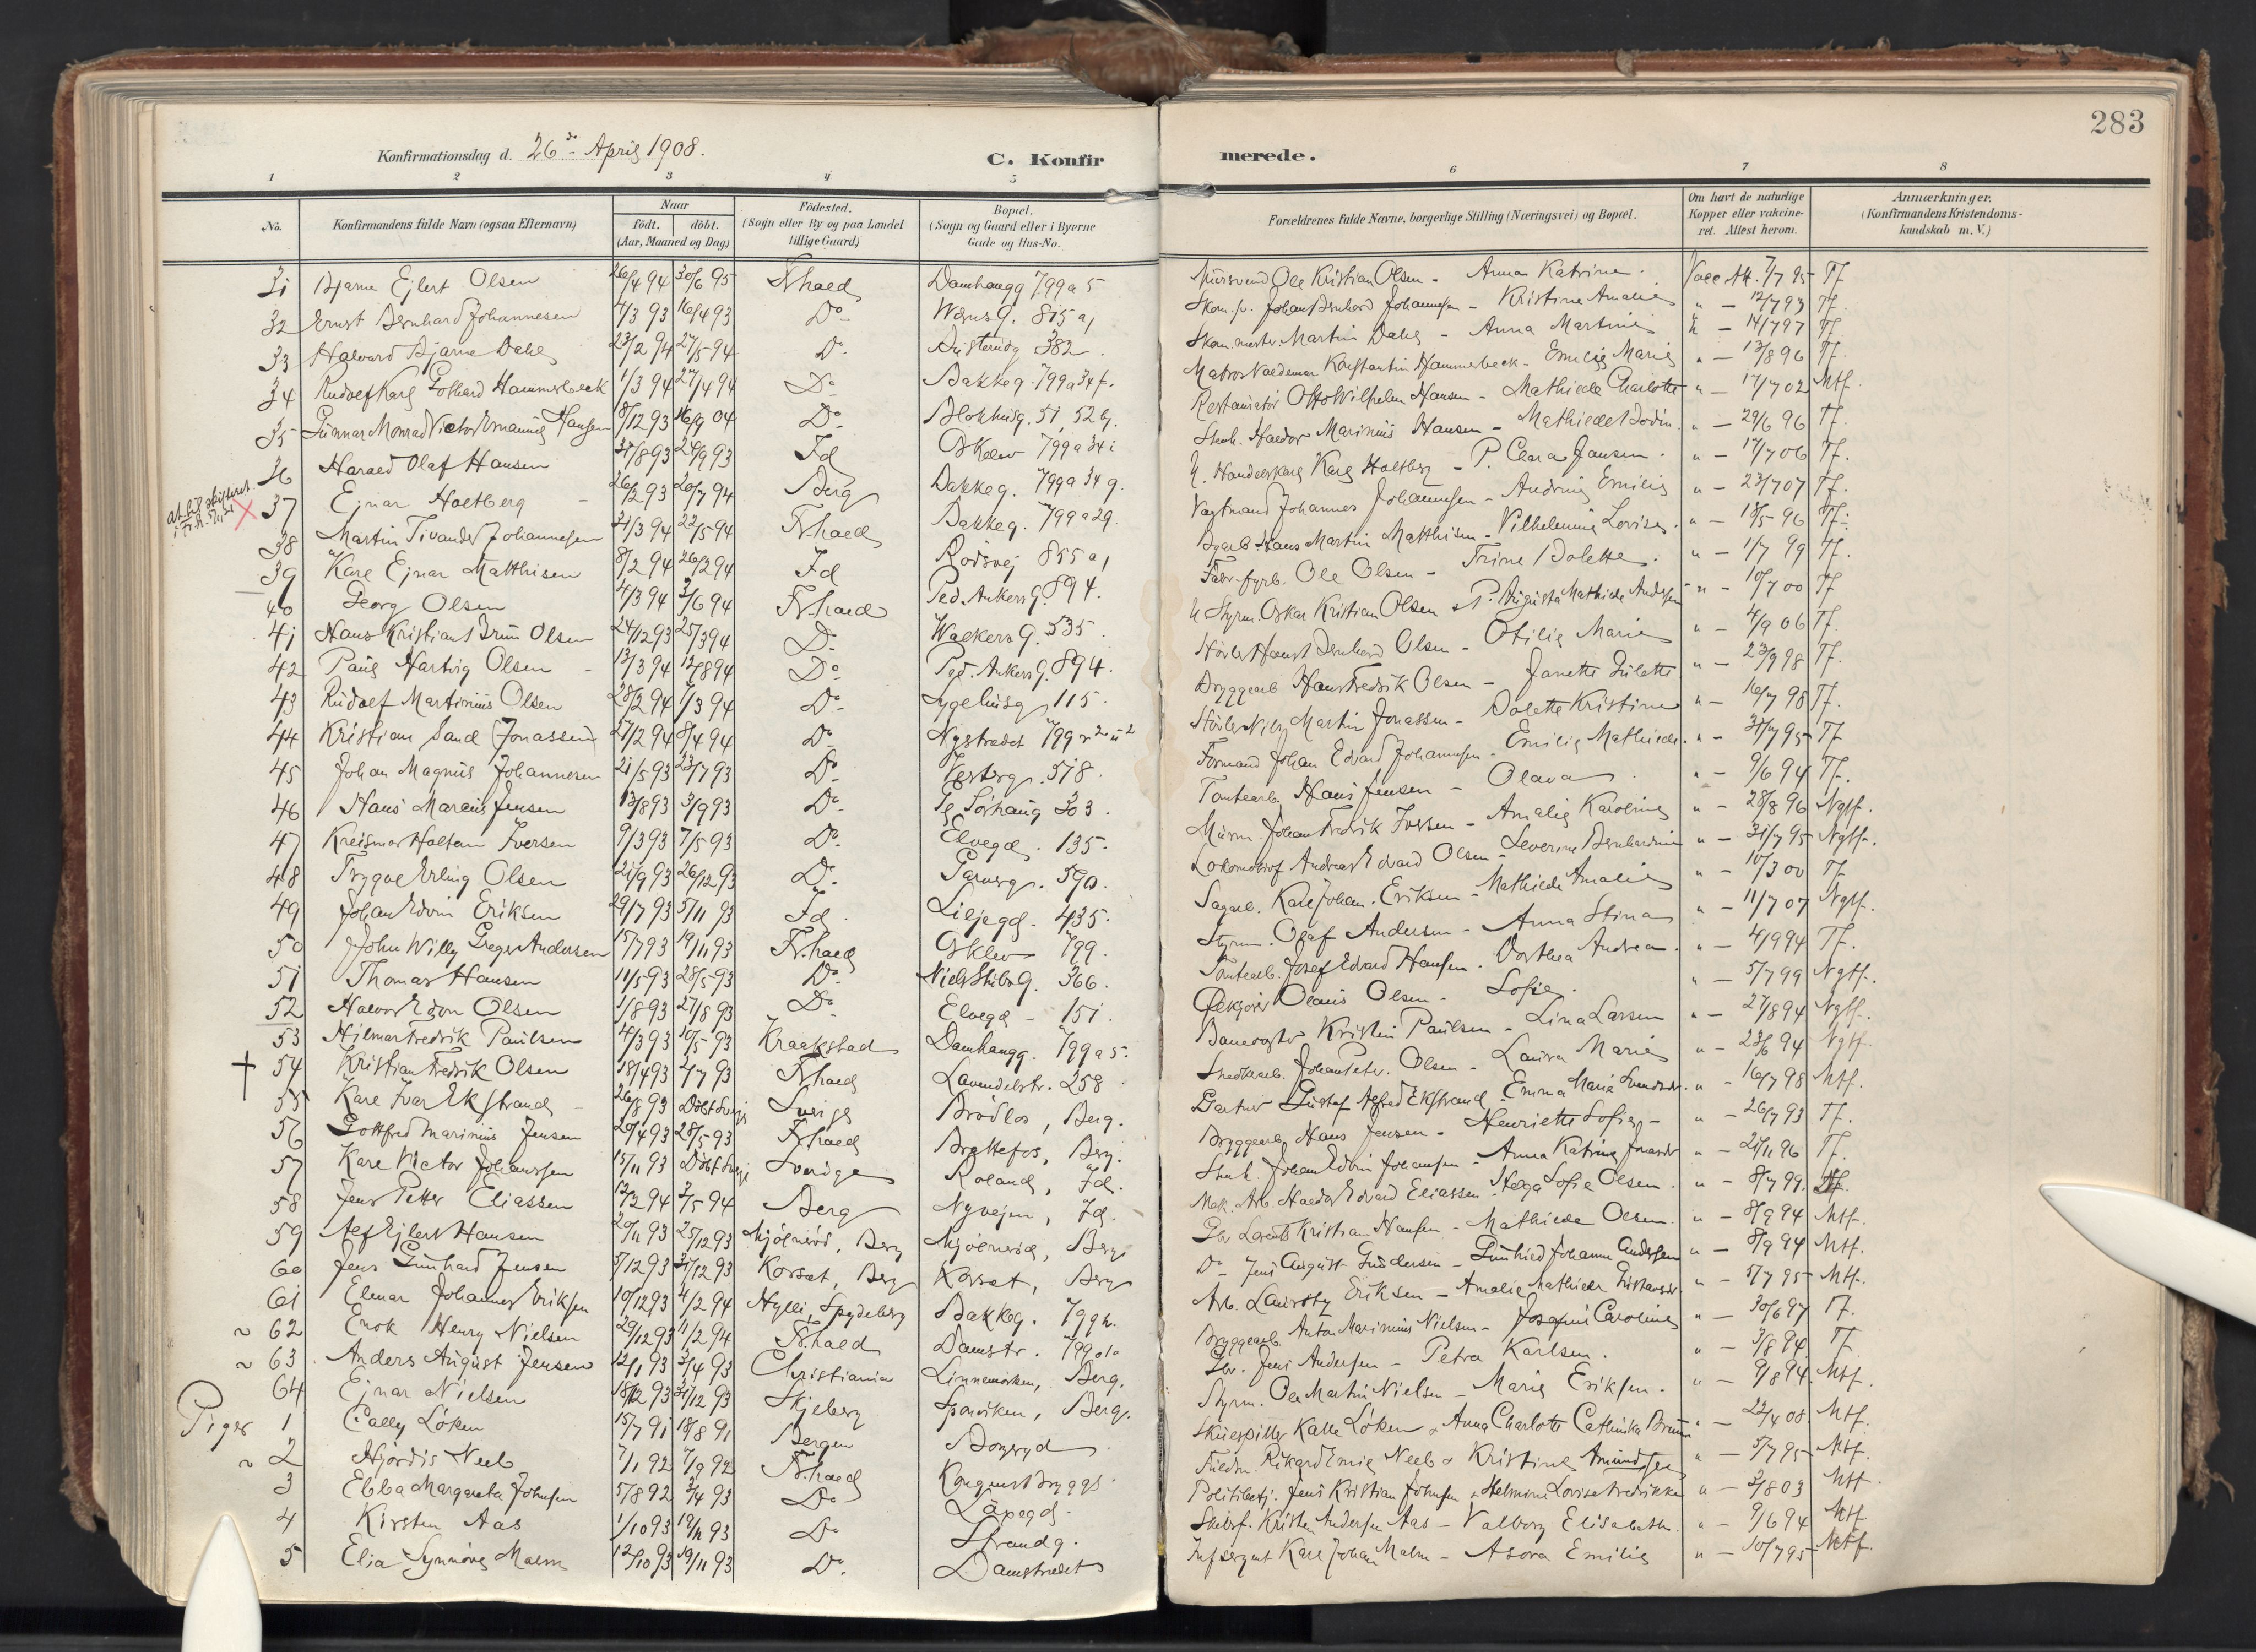 283
Konfirmationsdag d. 26de April 1908.
C. Konfirmerede.
1 2 3 4 5 6 7 8
No. Konfirmandens fulde Navn (ogsaa Efternavn) Naar født. døbt. (Aar, Maaned og Dag) Fødested. (Sogn eller By og paa Landet tillige Gaard) Bopæl. (Sogn og Gaard eller i Byerne Gade og Hus-No. Forældrenes fulde Navne, borgerlige Stilling (Næringsvei) og Bopæl. Om havt de naturlige Kopper eller vakcineret. Attest herom. Anmærkninger. (Konfirmandens Kristendomskundskab m. V.)
31 Bjarne Ejlert Olsen 26/4 94 30/6 95 Fr.hald Damhaugg 799 a 5 Mursvend Ole Kristian Olsen - Anna Katrine. Vacc. Att. 7/7 95 Tf
32 Ernst Bernhard Johannesen 4/3 93 16/4 93 Do Wærnsg. 815 a, Johan Bernhard Johannesen - Kristine Amalie " - 12/7 93 Tf.
33 Halvard Bjarne Dahl 23/2 94 27/5 94 Do 382. Skom.mester Martin Dahl - Anna Martine " - 14/7 97 Tf
34 Rudolf Karl Gothard Hammerbeck 1/3 94 27/4 94 Do Bakkeg. 799 a 34 f. Matros Valdemar Konstantin Hammerbeck - Emilie Marie " - 13/8 96 Tf.
35 Gunnar Monrad Victor Emanuel Hansen 18/12 93 16/9 04 Do Blokhusg. 51, 52 b. Restauratør Otto Wilhelm Hansen - Mathilde Charlotte " - 17/7 02 Mtf.
36 Harald Olaf Hansen 31/8 93 24/9 93 Id Osklev 799 a 34 i Stenh. Haldor Marinius Hansen - Mathilde Bodin. " - 29/6 96 Tf.
37 Ejnar Holtberg 26/2 93 20/7 94 Berg Bakkeg. 799 a 34 g. U. Handelskarl Karl Holtberg - P. Clara Jansen. " - 17/7 06 Tf.
38 Martin Tivander Johannesen 31/3 94 22/5 94 Fr.hald Bakkeg. 799 a 29. Vagtmand Johannes Johannesen - Andrine Emilie " - 23/7 07 Tf.
39 Karl Ejnar Matthisen 8/2 94 26/2 94 Id Rødsvej 855 a, Hans Martin Matthisen - Vilhelmine Lovise. " - 18/5 96 Tf.
40 Georg Olsen 4/3 94 3/6 94 Fr.hald Ped. Ankersg. 894. Fabr.fyrb. Ole Olsen - Trine Bolette. " - 1/7 99 Tf.
41 Hans Kristian Brun Olsen 24/12 93 25/3 94 Do Walkersg. 535. U. Styrm. Oskar Kristian Olsen & P. Augusta Mathilde Andersen " - 10/7 00 Tf
42 Paul Hartvig Olsen 13/3 94 12/8 94 Do Ped. Ankersg. 894. Bernhard Olsen - Otilie Marie " - 4/9 06 Tf.
43 Rudolf Martinius Olsen 28/2 94 7/3 94 Do Sygehusg 115. Bryggearb Hans Fredrik Olsen - Janette Julette " - 23/9 98 Tf.
44 Kristian Sand (Jonassen) 27/2 94 8/4 94 Do Nystrædet 799 Nils Martin Jonassen - Bolette Kristine " - 16/7 98 Tf.
45 Johan Magnus Johannesen 21/5 93 23/7 93 Do Vesterg. 518. Formand Johan Edvard Johannesen - Emilie Mathilde. " - 31/7 95 Tf
46 Hans Marcius Jensen 13/8 93 3/9 93 Do Sørhaug 303. Tomtearb. Hans Jensen - Olava " - 9/6 94 Tf.
47 Kreismar Holtan Iversen 9/3 93 7/5 93 Do Elvegd. 135. Murm. Johan Fredrik Iversen - Amalie Karoline " - 28/8 96 Ngtf.
48 Trygve Erling Olsen 21/9 93 26/12 93 Do Garverg. 590. Lokomotivf Andreas Edvard Olsen - Severine Bernhardine " - 31/7 95 Ngtf.
49 Johan Edvin Eriksen 29/7 93 5/11 93 Id. Liljegd. 435. Sagarb. Karl Johan Eriksen - Mathilde Amalie " - 10/3 00 Tf
50 John Willy Greger Andersen 15/7 93 19/11 93 Fr.hald Osklev 799. Styrm. Olaf Andersen - Anna Stina " - 11/7 07 Ngtf.
51 Thomas Hansen 11/5 93 28/5 93 Do Niels Stubsg. 366. Tomtearb. Josef Edvard Hansen. Dorthea Andrea. " - 4/9 94 Tf.
52 Halvor Edon Olsen 1/8 93 27/8 93 Do Elvegd - 151. Ølkjører Olaus Olsen - Sofie. " - 5/7 99 Ngtf.
53 Hjelmar Fredrik Paulsen 4/3 93 10/5 93 Kraakstad Damhaugg. 799 a 5. Banevogter Kristin Paulsen - Lina Larsen " - 27/8 94 Ngtf.
54 Kristian Fredrik Olsen 18/4 93 2/7 93 Fr.hald Lavendelstr. 258 Johan Peter Olsen - Laura Marie " - 23/6 94 Ngtf.
55 Karl Ivar Ekstrand 26/8 93 Døbt Sverige Sverige Brødløs, Berg. Gartner Gustaf Alfred Ekstrand - Emma Maria Svendsdr. " - 16/7 98 Mtf.
56 Gottfred Marinius Jensen 20/4 93 28/5 93 Fr.hald Brattefos, Berg. Bryggearb. Hans Jensen - Henriette Sofie - " - 26/7 93 Tf.
57 Karl Victor Johansen 15/11 93 Døbt Sverige Sverige Roland, Id. Stenh. Johan Edvin Johansen - Anna Katrine " - 21/11 96 Tf.
58 Jens Petter Eliassen 12/2 94 3/5 94 Berg Nyvejen, Id. Mek. Arb. Haldor Edvard Eliassen. Helga Sofie Olsen. " - 8/7 99. Tf.
59 Alf Ejlert Hansen 20/11 93 25/12 93 Mjølnerød, Berg Mjølnerød, Berg Gbr Lorents Kristian Hansen - Mathilde Olsen. " - 8/9 94 Mtf.
60 Jens Gunhard Jensen 5/12 93 31/12 93 Korsæt, Berg Korsæt, Berg Do Jens August Gundersen - Gunhild Johanne Andersen " - 8/9 94 Mtf.
61 Elmar Johannes Eriksen 10/12 93 4/2 94 Hylli, Spydeberg Bakkeg. 799 h. Arb. Lauritz Eriksen - Amalie Mathilde Gustavsdr. " - 5/7 95 Mtf.
62 Enok Henry Nielsen 29/12 93 11/2 94 Fr.hald Damstr. 799 Bryggearb. Anton Marinius Nielsen - Josefine Caroline " - 30/6 97 Tf.
63 Anders August Jensen 12/1 93 3/4 93 Christiania Linnemorken, Berg. Gbr. Jens Andersen - Petra Karlsen. " - 3/8 94 Tf
64 Ejnar Nielsen 18/12 93 31/12 93 Skjeberg Sponviken, Berg. Styrm. Ole Martin Nielsen - Marie Eriksen. " - 9/8 94 Mtf.
Piger 1 Cally Løken 15/7 91 18/8 91 Bergen Skuespiller Kalle Løken & Anna Charlotte Cathinka Bruun " - 22/4 08. Mtf.
2 Hjørdis Neeb 7/1 92 7/9 92 Fr.hald Kongensbrygge. Rikard Emil Neeb & Kristine Amundsen " - 5/7 95 Mtf.
3 Ebba Margareta Johnsen 5/8 92 3/4 93 Do Politibetj. Jens Kristian Johnsen & Helmine Lovise Fredrikke " - 3/8 03 Mtf.
4 Kirsten Aas 1/10 93 19/11 93 Do Strandg. Skibsf. Kristen Andersen Aas - Valborg Elisabeth. " - 9/6 94 Mtf.
5 Elia Synnøve Malm 12/10 93 19/11 93 Do Damstrædet Karl Johan Malm - Asora Emilie " - 10/7 95 Mtf.